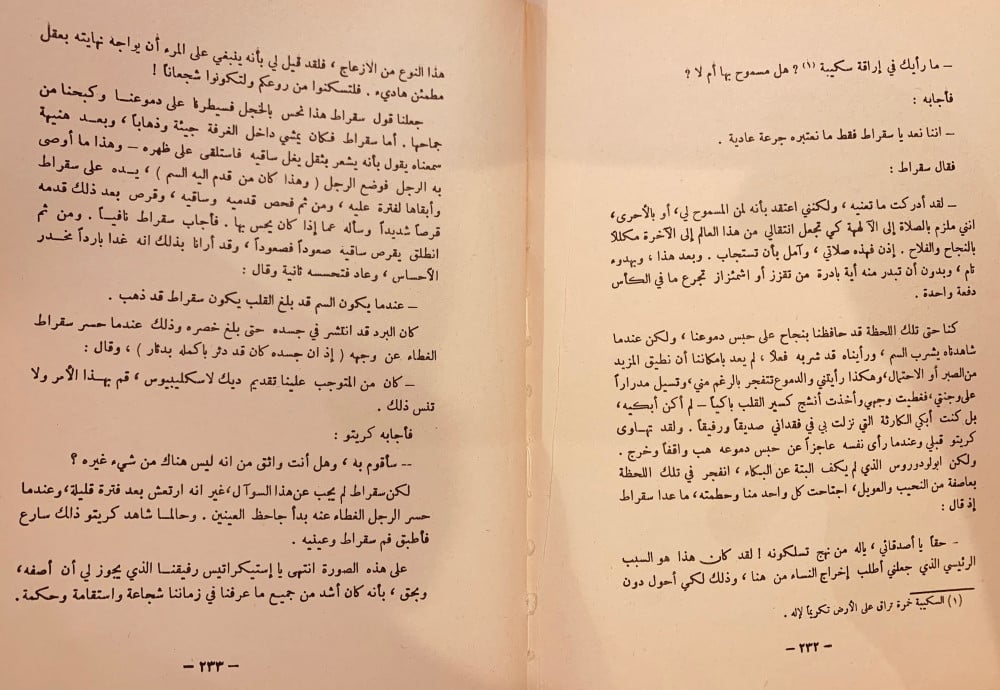 — ما رأيك في إراقة سكيبة (١) ? هل مسموح بها أم لا ?
فأجابه :
— اننا نعد يا سقراط فقط ما نعتبره جرعة عادية .
فقال سقراط :
— لقد أدركت ما تعنيه ، ولكنني اعتقد بأنه لمن المسموح لي، أو بالأحرى،
انني ملزم بالصلاة إلى الآلهة كي تجعل انتقالي من هذا العالم إلى الآخرة مكللا
بالنجاح والفلاح . إذن فهذه صلاتي ، وآمل بأن تستجاب . وبعد هذا ، وبهدوء
تام ، وبدون أن تبدر منه أية بادرة من تقزز أو اشمئزاز تجرع ما في الكأس
دفعة واحدة .
كنا حتى تلك اللحظة قد حافظنا بنجاح على حبس دموعنا ، ولكن عندما
شاهدناه يشرب السم ، ورأيناه قد شربه فعلا ، لم يعد بإمكاننا أن نطيق المزيد
من الصبر أو الاحتمال، وهكذا رأيتني والدموع تتفجر بالرغم مني، وتسيل مدراراً
على وجنتي، فغطيت وجهي وأخذت أنشج كسير القلب باكياً — لم أكن أبكيه،
بل كنت أبكي الكارثة التي نزلت بي في فقداني صديقاً ورفيقاً . ولقد تهاوى
كريتو قبلي وعندما رأى نفسه عاجزاً عن حبس دموعه هب واقفاً وخرج .
ولكن ابولودوروس الذي لم يكف البتة عن البكاء ، انفجر في تلك اللحظة
بعاصفة من النحيب والعويل، اجتاحت كل واحد منا وحطمته، ما عدا سقراط
إذ قال :
— حقاً يا أصدقائي ، ياله من نهج تسلكونه ! لقد كان هذا هو السبب
الرئيسي الذي جعلني أطلب إخراج النساء من هنا ، وذلك لكي أحول دون
(١) السكيبة خمرة تراق على الأرض تكريماً لإله .
— ٢٣٢ —
هذا النوع من الازعاج ، فلقد قيل لي بأنه ينبغي على المرء أن يواجه نهايته بعقل
مطمئن هاديء . فلتسكنوا من روعكم ولتكونوا شجعاناً !
جعلنا قول سقراط هذا نحس بالخجل فسيطرنا على دموعنا وكبحنا من
جماحها . أما سقراط فكان يمشي داخل الغرفة جيئة وذهاباً ، وبعد هنيهة
سمعناه يقول بأنه يشعر بثقل يغل ساقيه فاستلقى على ظهره — وهذا ما أوصى
به الرجل فوضع الرجل ( وهذا كان من قدم اليه السم ) ، يده على سقراط
وأبقاها لفترة عليه ، ومن ثم فحص قدميه وساقيه ، وقرص بعد ذلك قدمه
قرصاً شديداً وسأله عما إذا كان يحس بها . فأجاب سقراط نافياً . ومن ثم
انطلق يقرص ساقيه صعوداً فصعوداً ، وقد أرانا بذلك انه غدا بارداً مخدر
الأحساس ، وعاد فتحسسه ثانية وقال :
— عندما يكون السم قد بلغ القلب يكون سقراط قد ذهب .
كان البرد قد انتشر في جسده حتى بلغ خصره وذلك عندما حسر سقراط
الغطاء عن وجهه ( إذ ان جسده كان قد دثر باكمله بدثار ) ، وقال :
— كان من المتوجب علينا تقديم ديك لاسكليبيوس ، قم بهذا الأمر ولا
تنس ذلك .
فأجابه كريتو :
-- سأقوم به ، وهل أنت واثق من انه ليس هناك من شيء غيره ؟
لكن سقراط لم يجب عن هذا السوآل، غير انه ارتعش بعد فترة قليلة، وعندما
حسر الرجل الغطاء عنه بدأ جاحظ العينين . وحالما شاهد كريتو ذلك سارع
فأطبق فم سقراط وعينيه .
على هذه الصورة انتهى يا إستيكراتيس رفيقنا الذي يجوز لي أن أصفه،
وبحق ، بأنه كان أشد من جميع ما عرفنا في زماننا شجاعة واستقامة وحكمة .
— ٢٣٣ —